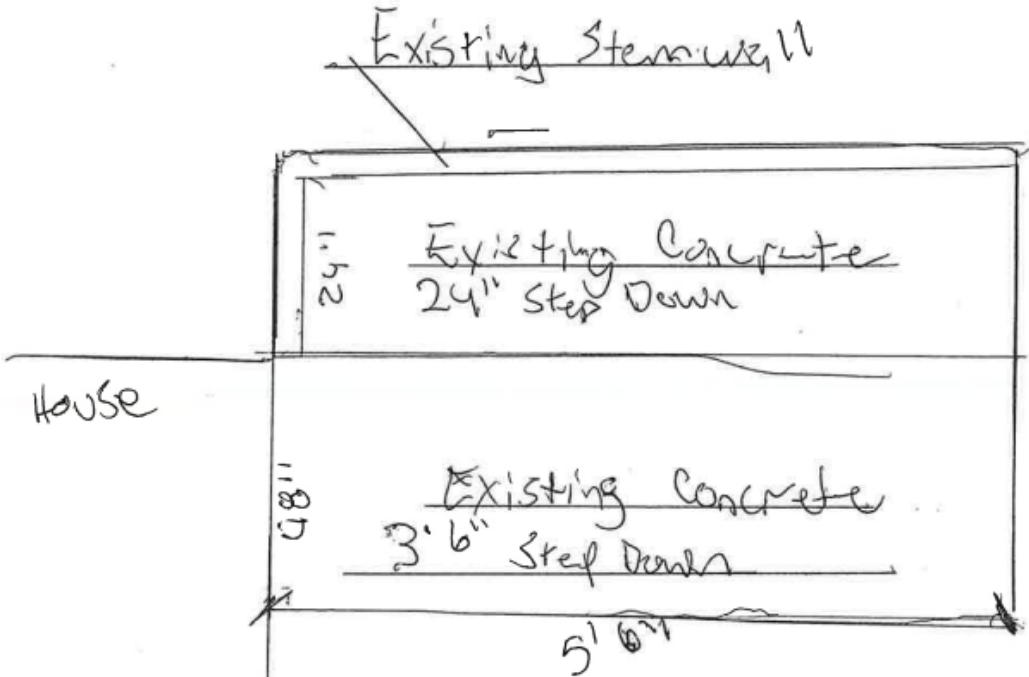 Existing Stemwall
24"
Existing Concrete
24" Step Down
House
48"
Existing Concrete
3'6" Step Down
5'6"